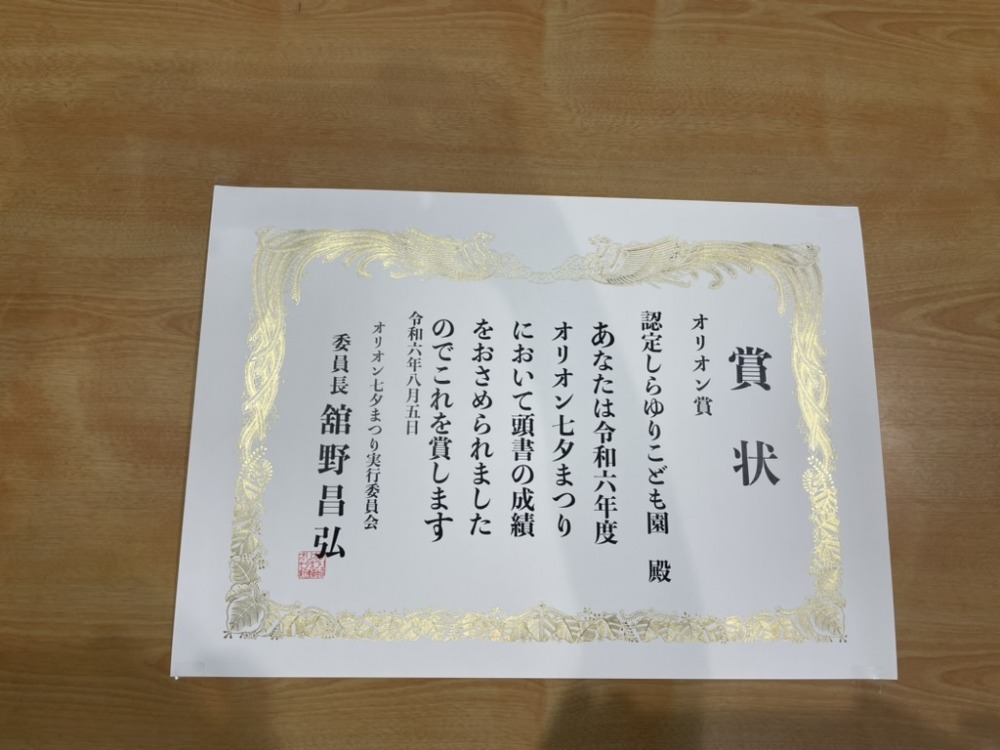 賞状
オリオン賞
認定しらゆりこども園 殿
あなたは令和六年度
オリオン七夕まつり
において頭書の成績
をおさめられました
のでこれを賞します
令和六年八月五日
オリオン七夕まつり実行委員会
委員長 舘野昌弘